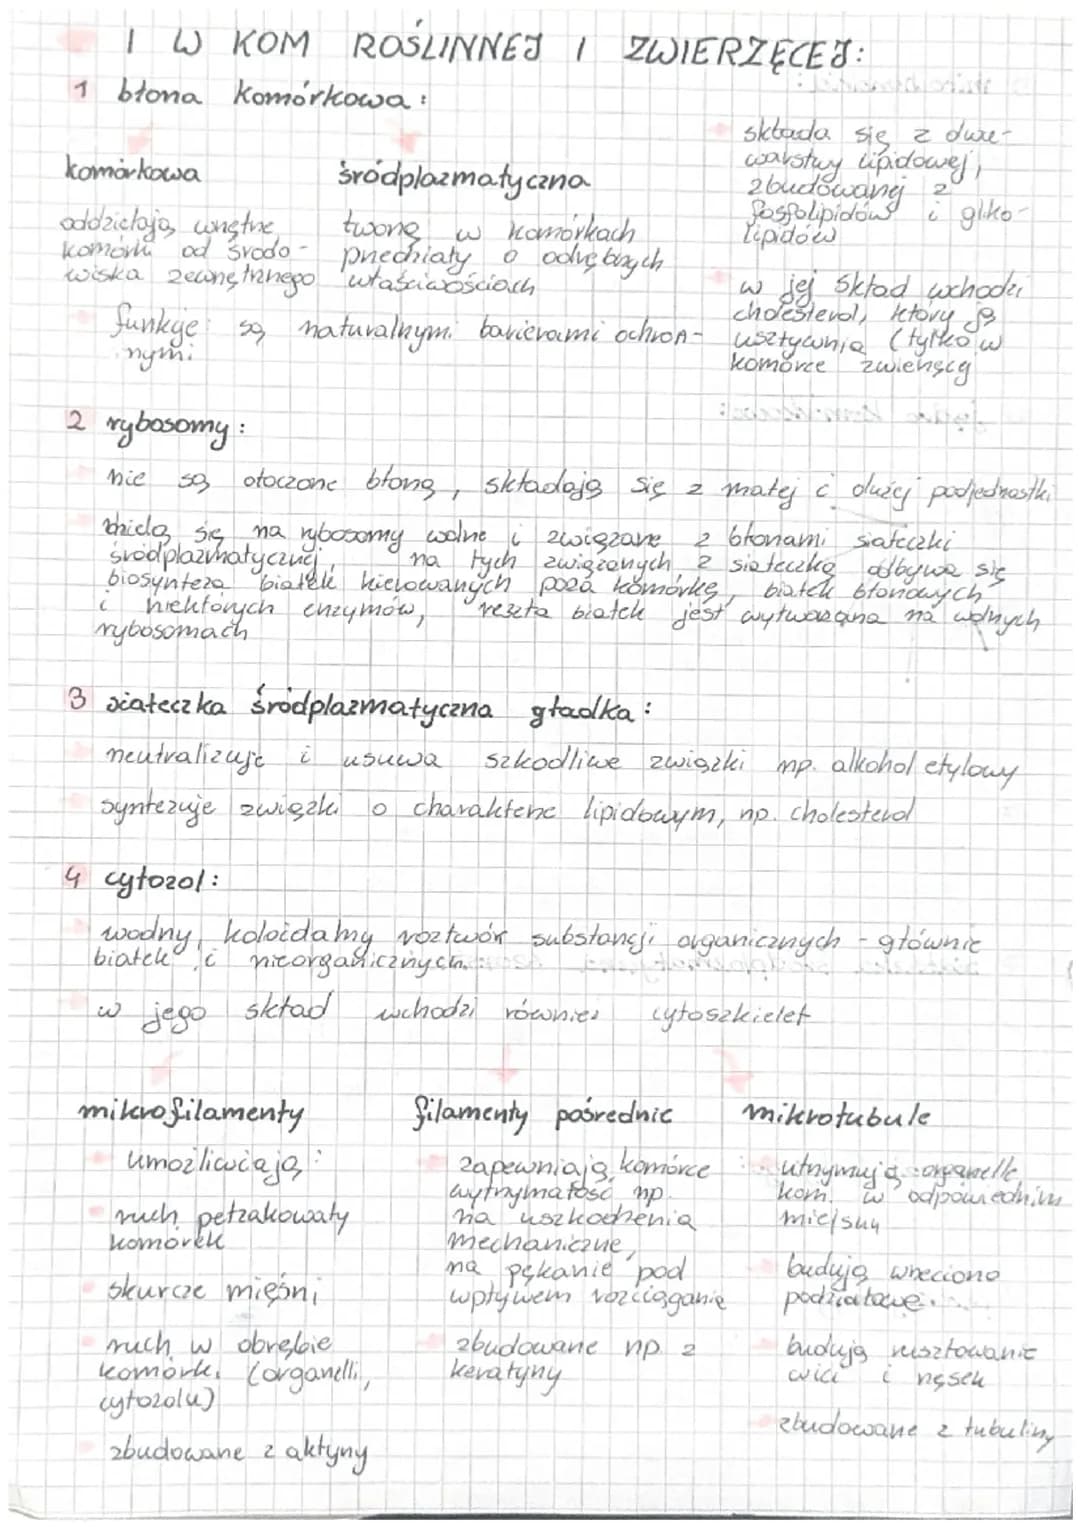 I W KOM ROŚLINNEJ I ZWIERZĘCEJ:
1 błona komórkowa:
komórkowa
oddzielają wnętrze
komórki od środo-
wiska zewnętrznego
śródplazmatyczna
tworzą w komórkach
przedziały o odrębnych
właściwościach
funkcje: są naturalnymi barierami ochron-
nymi
składa się z dwu-
warstwy lipidowej,
zbudowanej z
fosfolipidów i gliko-
lipidów
w jej skład wchodzi
cholesterol, który ją
usztywnia (tylko w
komórce zwierzęcej
2 rybosomy:
nie są otoczone błoną, składają się z małej i dużej podjednostki
dzielą się na rybosomy wolne i związane z błonami siateczki
śródplazmatycznej, na tych związanych z siateczką odbywa się
biosynteza białek kierowanych poza komórkę, białek błonowych
i niektórych enzymów, reszta białek jest wytwarzana na wolnych
rybosomach
3 siateczka śródplazmatyczna gładka:
neutralizuje i usuwa szkodliwe związki np. alkohol etylowy
syntezuje związki o charakterze lipidowym, np. cholesterol
4 cytozol:
wodny, koloidalny roztwór substancji organicznych - głównie
białek i nieorganicznych
w jego skład wchodzi również cytoszkielet
mikrofilamenty
umożliwiają:
ruch pełzakowaty
komórek
skurcze mięśni
ruch w obrębie
komórki (organelli,
cytozolu)
zbudowane z aktyny
filamenty pośrednie
zapewniają komórce
wytrzymałość np.
na uszkodzenia
mechaniczne,
na pękanie pod
wpływem rozciągania
zbudowane np z
keratyny
mikrotubule
utrzymują organelle
kom. w odpowiednim
miejscu
budują wrzeciono
podziałowe
budują rusztowanie
wici i rzęsek
zbudowane z tubuliny